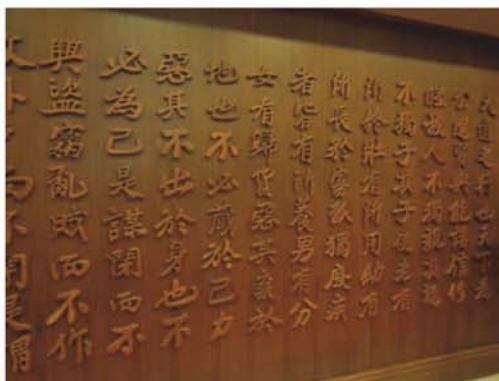 大道之行也天下為
公選賢與能講信修
睦故人不獨親其親
不獨子其子使老有
所終壯有所用幼有
所長矜寡孤獨廢疾
者皆有所養男有分
女有歸貨惡其棄於
地也不必藏於己力
惡其不出於身也不
必為己是謀閉而不
興盜竊亂賊而不作
故外戶而不閉是謂